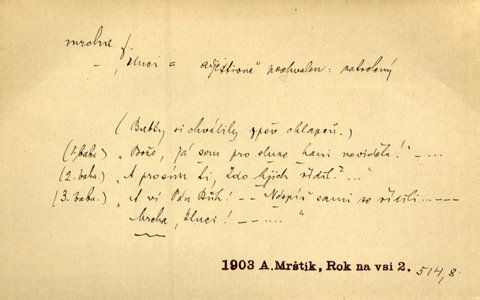 mrcha f.
– „ kluci = adjektivně pochvaln. : zatrolený
(Babky si chválily zpěv chlapců.)
(1. baba.) „Bože, já sem pro slze hani neviděla!" – ....
(2. baba.) „A prosim ti, gdo hjich řídil? ..."
(3. baba.) „A ví Pán Bůh! – – Nespíš sami se řídili ... – –
Mrcha, kluci! – – .... "
1903 A. Mrštík, Rok na vsi 2. 514, 8.